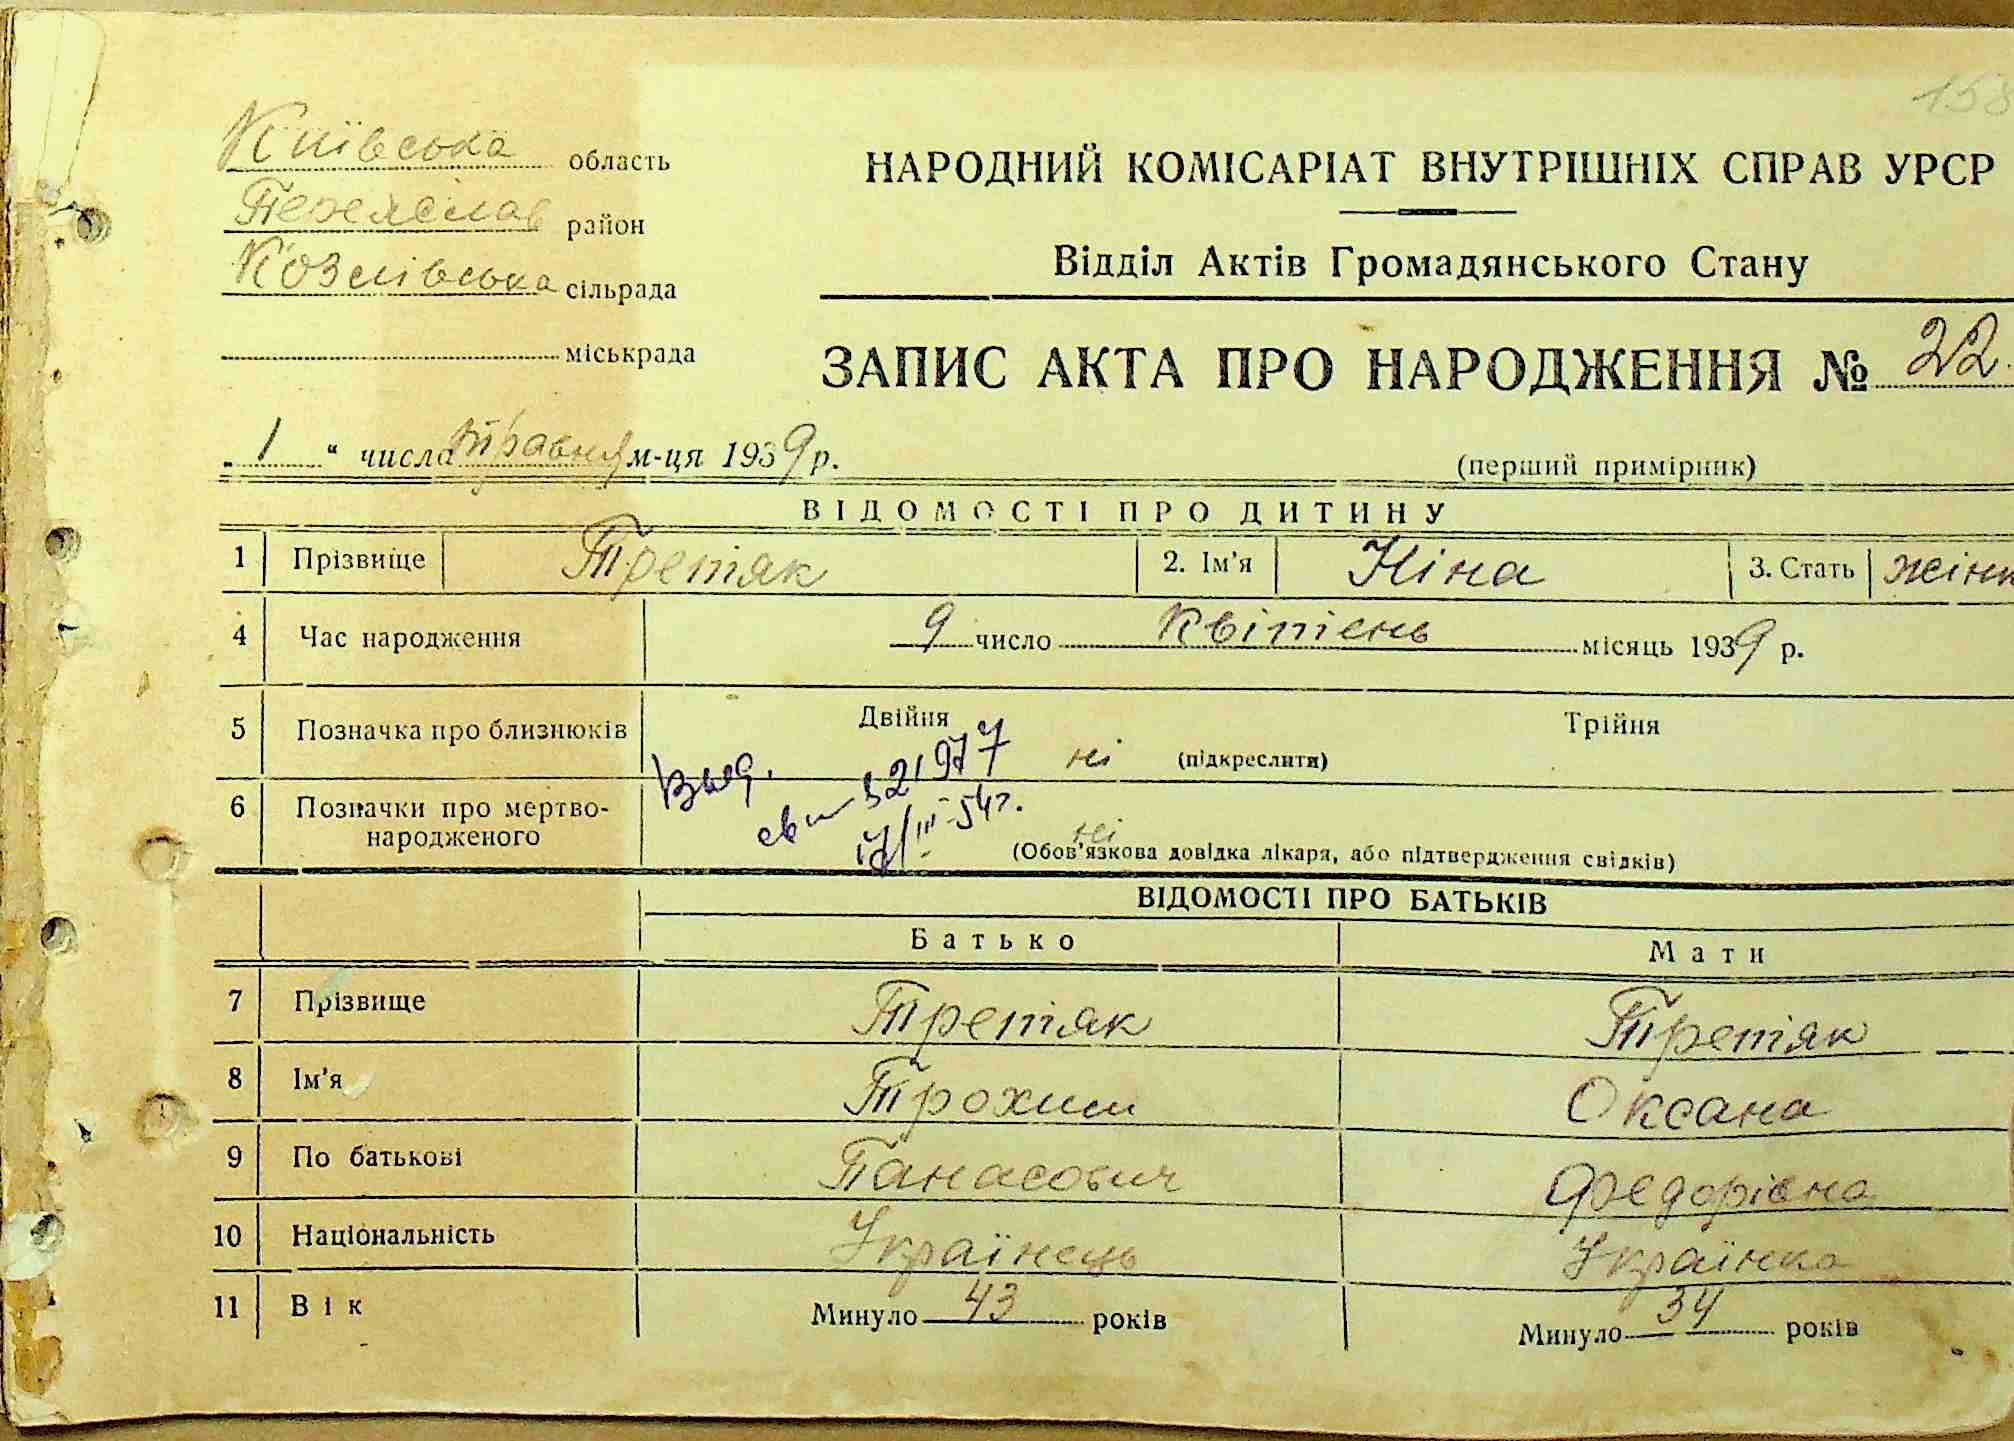 158
Київська область
Переяслав район
Козлівська сільрада
міськрада
НАРОДНИЙ КОМІСАРІАТ ВНУТРІШНІХ СПРАВ УРСР
Відділ Актів Громадянського Стану
ЗАПИС АКТА ПРО НАРОДЖЕННЯ № 22.
„ 1 “ числа травня м-ця 1939 р.
(перший примірник)
ВІДОМОСТІ ПРО ДИТИНУ
1 Прізвище Третяк 2. Ім'я Ніна 3. Стать жінк
4 Час народження 9 число Квітень місяць 1939 р.
5 Позначка про близнюків Двійня Трійня
ні (підкреслити)
Выд.
321977
17/III-54г.
6 Позначки про мертво-
народженого
ні
(Обов'язкова довідка лікаря, або підтвердження свідків)
ВІДОМОСТІ ПРО БАТЬКІВ
Батько Мати
7 Прізвище Третяк Третяк
8 Ім'я Трохим Оксана
9 По батькові Панасович Федорівна
10 Національність Українець Українка
11 Вік Минуло 43 років Минуло 34 років